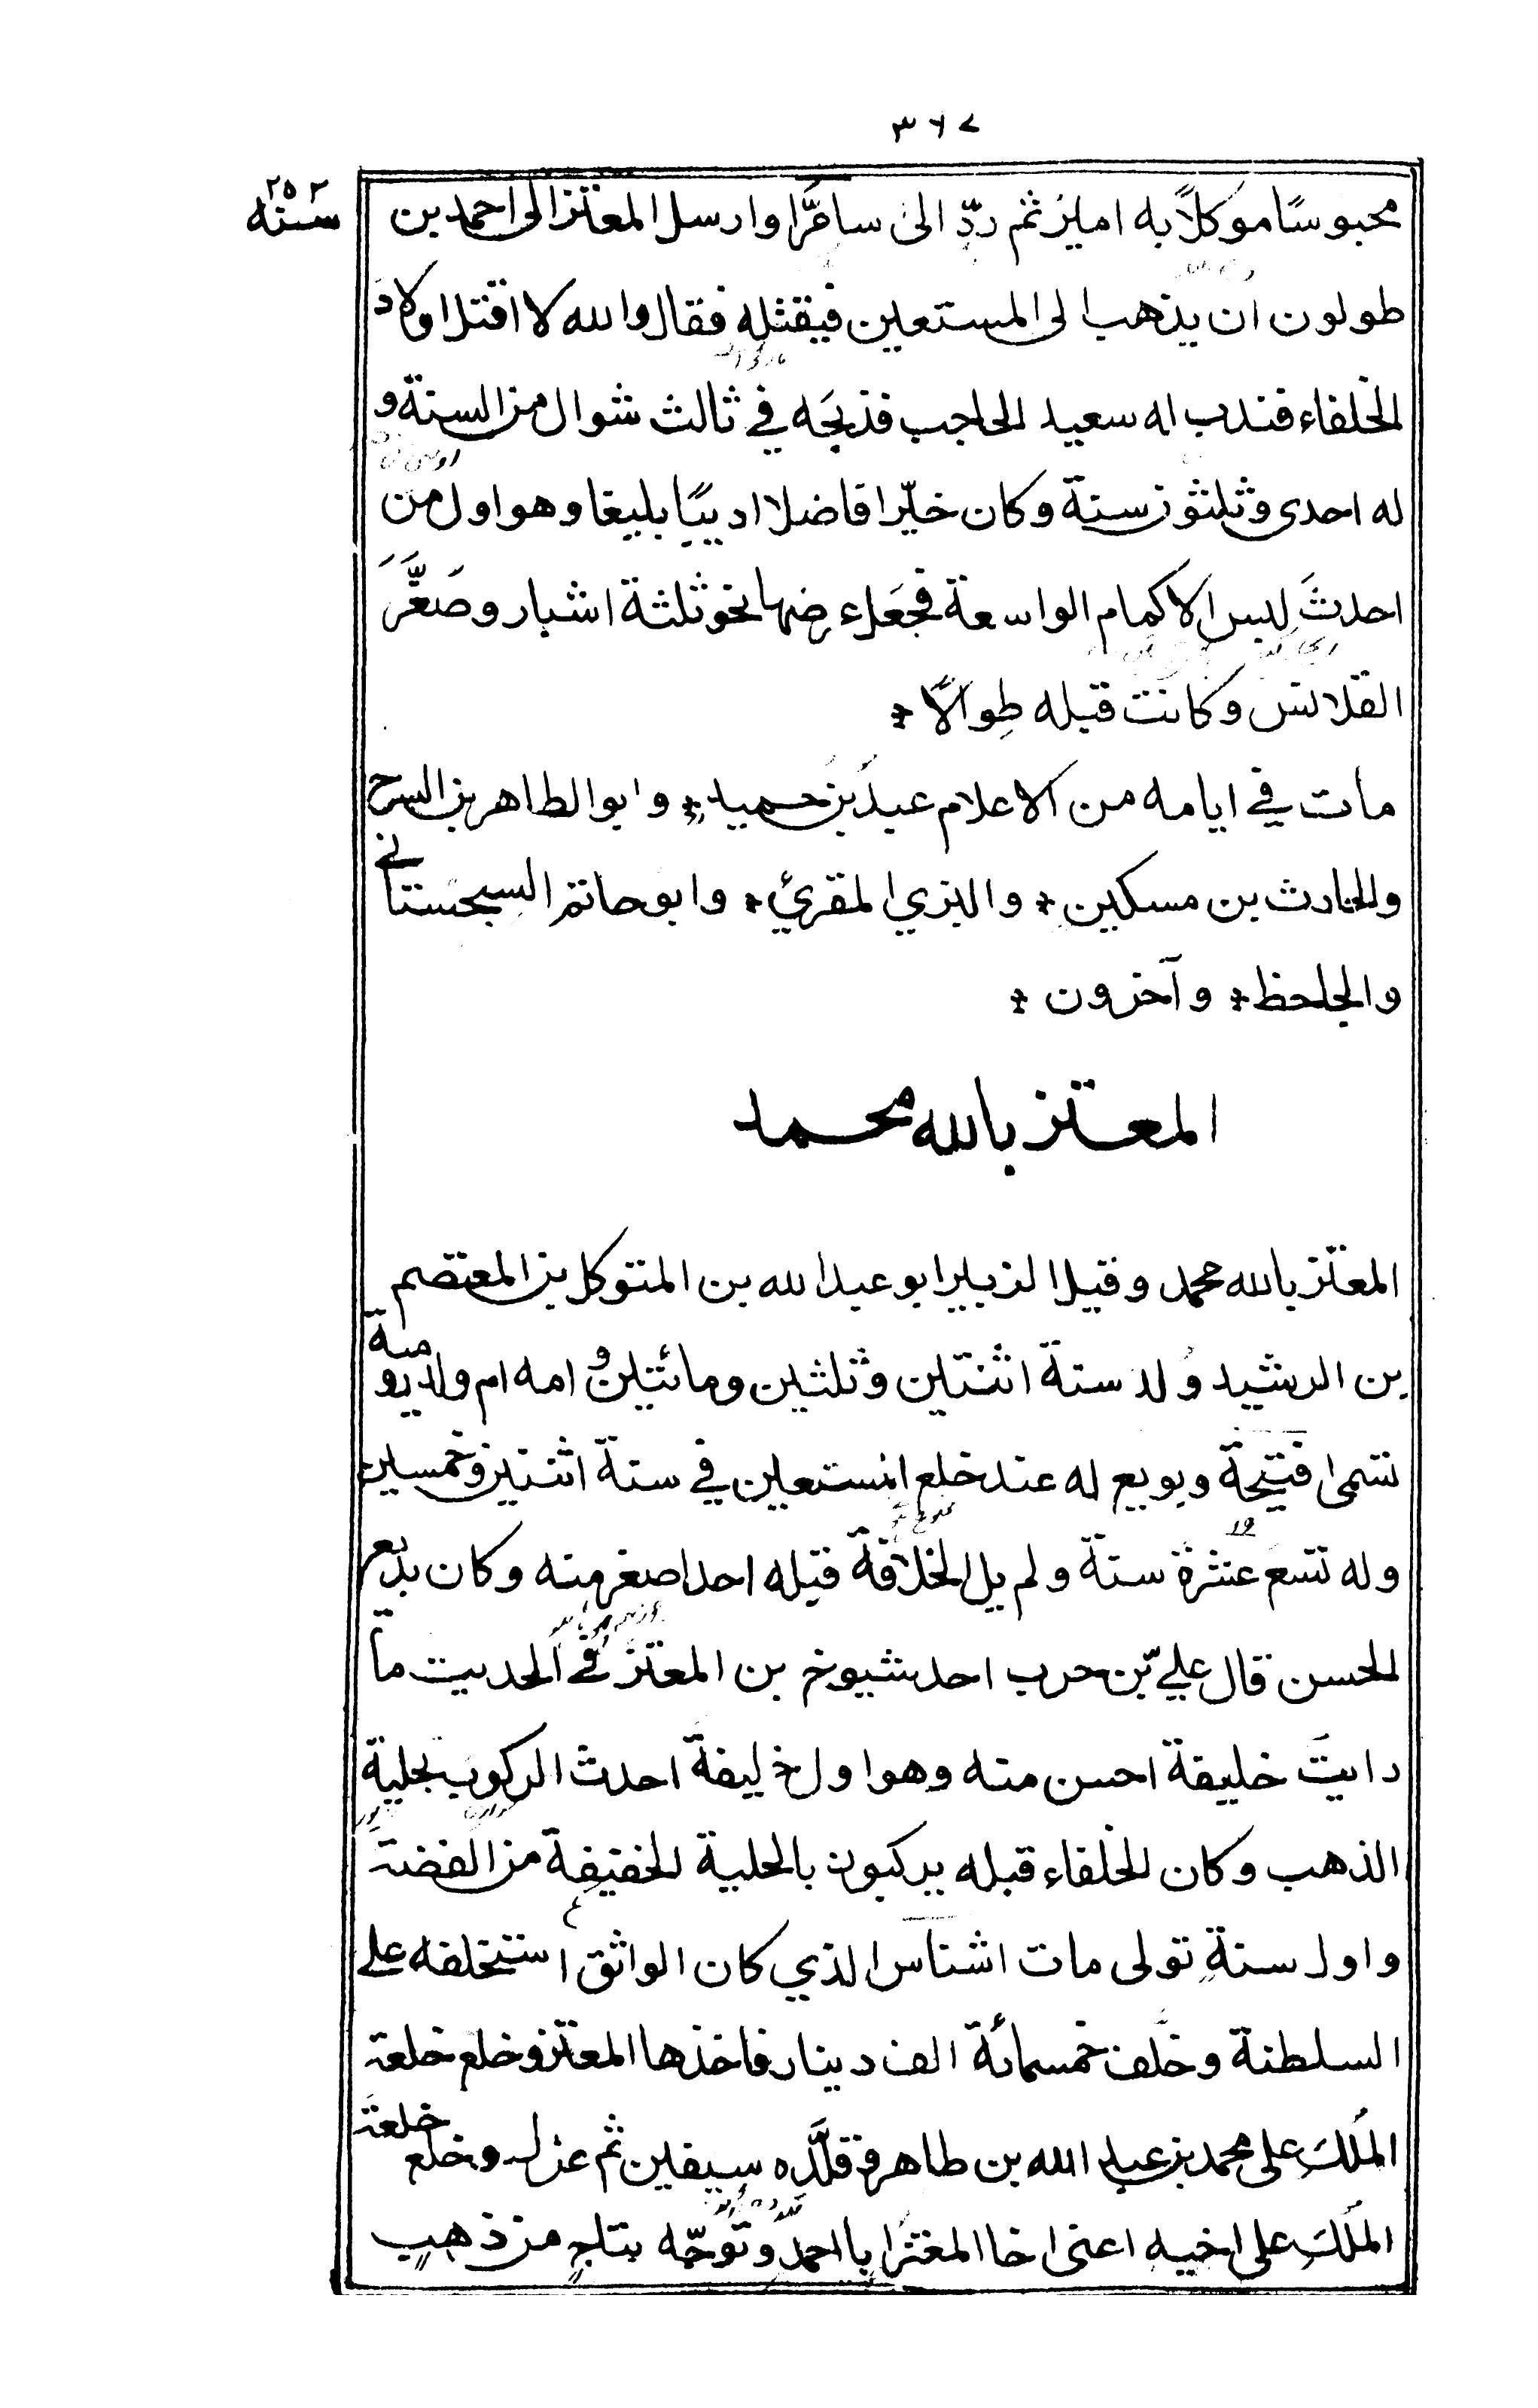 ٣٦٧
٢٥٢
سنه
محبوسًا موكلًا به امين ثم ردّ الى سامرّا وارسل المعتز الى احمد بن
طولون ان يذهب الى المستعين فيقتله فقال والله لا اقتل اولاد
الخلفاء فندب له سعيد الحاجب فذبحَه في ثالث شوال من السنة و
له احدى وثلثون سنة وكان خيّرا فاضلا اديبًا بليغا وهو اول من
احدثَ لِبس الاكمام الواسعة فجعَل عرضها نحو ثلثة اشبار وصَغَّرَ
القلانس وكانت قبله طِوالًا *
مات في ايامه من الاعلام عبدُ بن حميد * وابو الطاهر بن السرح
والحارث بن مسكين * والبزي المقرئ * وابو حاتم السجستاني
والجاحظ * وآخرون *
المعتز بالله محمد
المعتز بالله محمد وقيل الزبير ابو عبد الله بن المتوكل بن المعتصم
بن الرشيد وُلد سنة اثنتين وثلثين ومائتين وامه ام ولد رومية
تسمى قبيحة وبويع له عند خلع المستعين في سنة اثنتين وخمسين
وله تسعَ عشرة سنة ولم يل الخلافة قبله احد اصغر منه وكان بديع
الحسن قال علي بن حرب احد شيوخ بن المعتز في الحديث ما
رايت خليفة احسن منه وهو اول خليفة احدث الركوب بحلية
الذهب وكان الخلفاء قبله يركبون بالحلية الخفيفة من الفضة
واول سنةٍ تولى مات اشناس الذي كان الواثق استخلفه على
السلطنة وخلّف خمسمائة الف دينار فاخذها المعتز وخلع خلعة
المَلكِ على محمد بن عبد الله بن طاهر وقلَّده سيفين ثم عزله وخلع خلعة
المَلكِ على اخيه اعنى اخا المعتز ابا احمد وتوجّه بتاجٍ من ذهبٍ